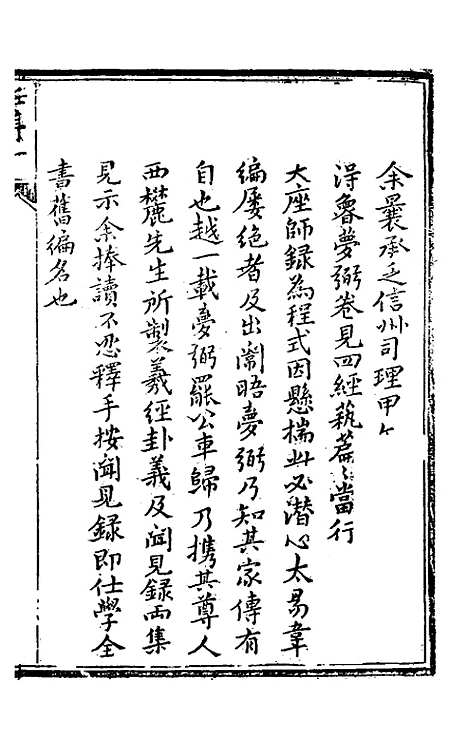 余曩承乏信州司理甲午
淂魯夢弼卷見四經蓺篇〻當行
大座師録為程式因懸揣此必潜心太易韋
編屡绝者及出闈晤夢弼乃知其家傳有
自也越一載夢弼罷公車歸乃擕其尊人
西麓先生所製羲經卦義及闻見録两集
見示余捧讀不忍釋手按闻見録即仕學全
書舊编名也